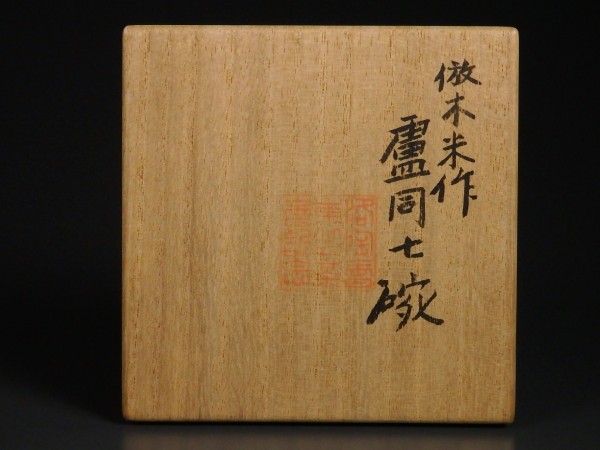 倣木米作
盧同七碗